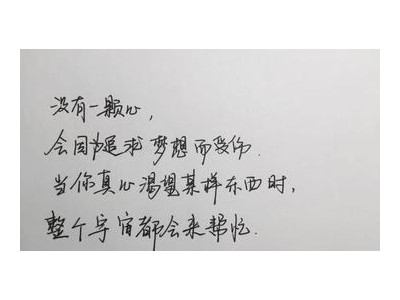 没有一颗心，
会因为追求梦想而受伤.
当你真心渴望某样东西时，
整个宇宙都会来帮忙.